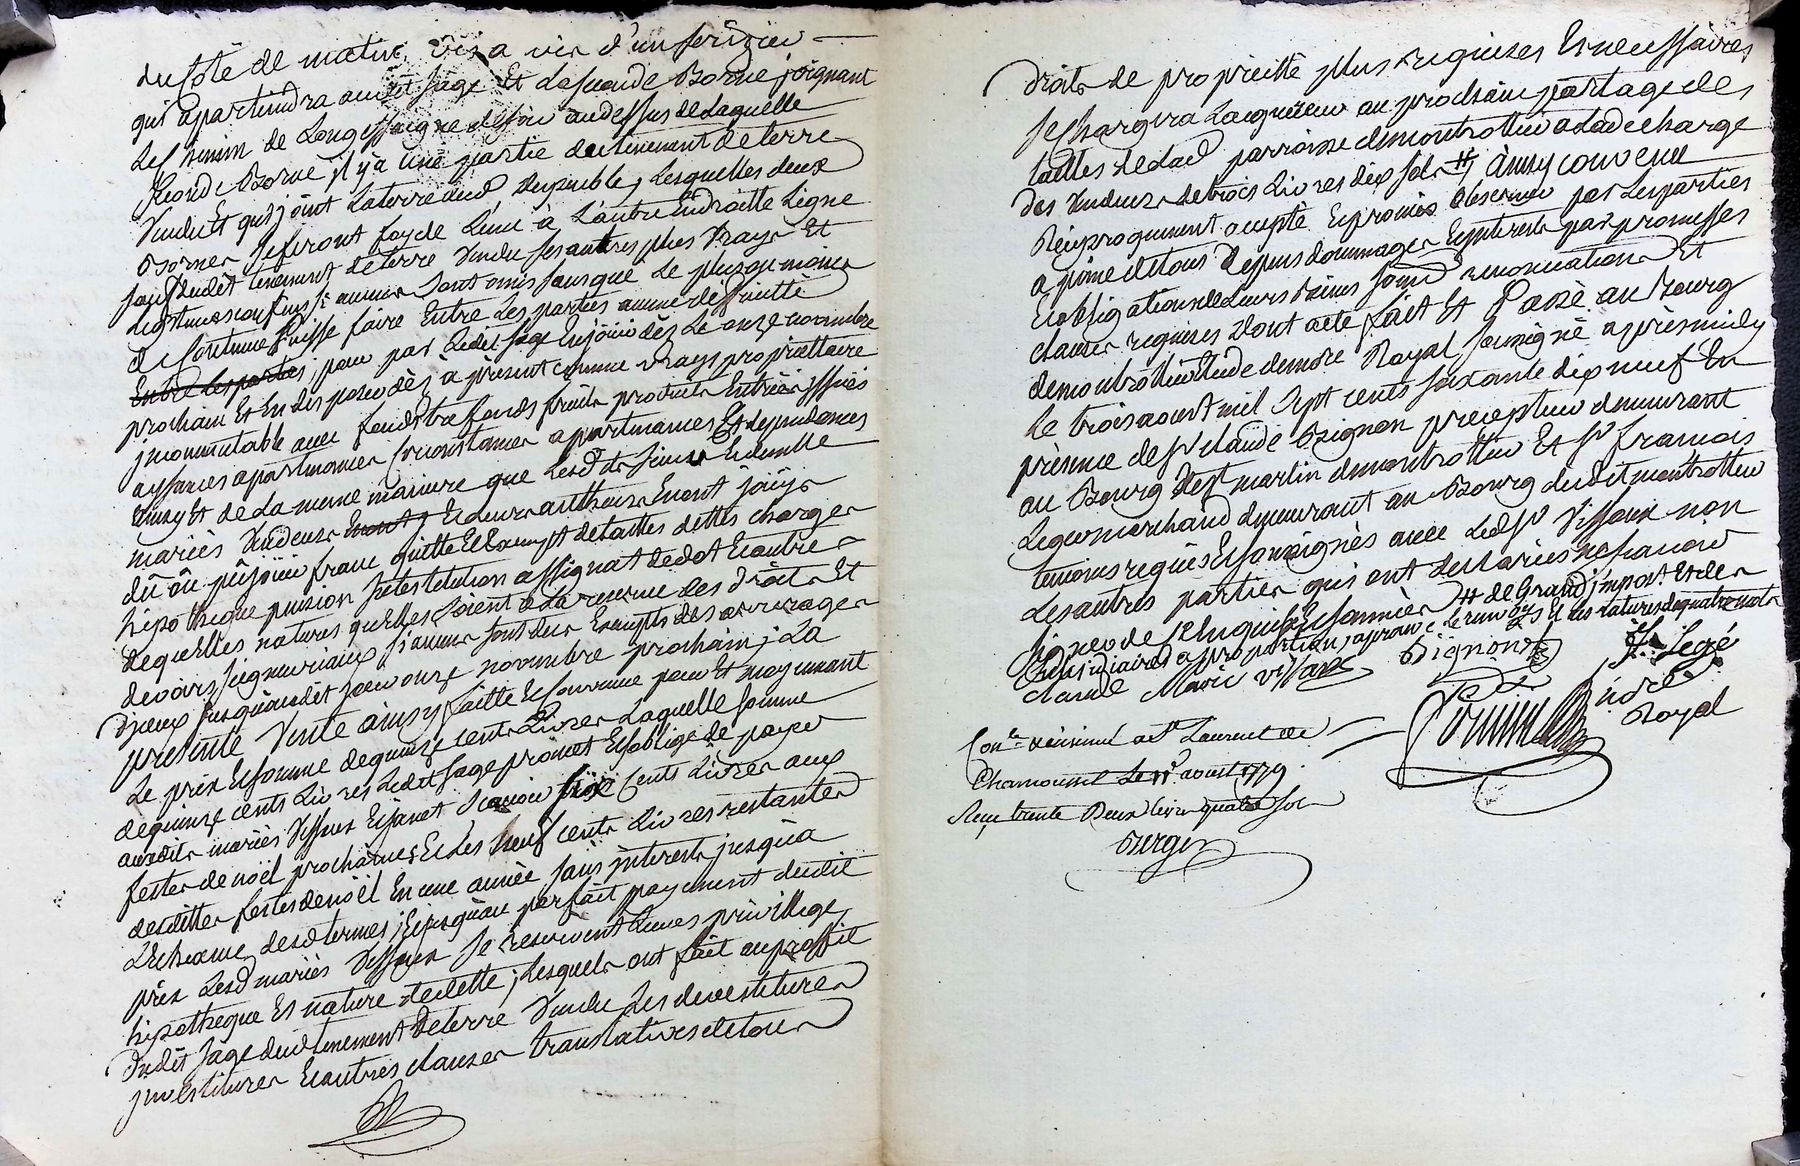 du Côté de matin vis a vis d'un serizier
qui apartiendra audit Sage Et La seconde Borne joignant
Le Chemin de Longessaigne a Affoux au dessus de Laquelle
seconde Borne il y a une partie du tenement de terre
Vendu Et qui joint La terre dud Lesquelles deux
Bornes se feront foy de L'une à L'autre En droitte Ligne
sauf dudit tenement de terre Vendu ses autres plus Vrays Et
Legitimes confins si aucuns sont omis sans que Le plus ou moins
de Contenue Puisse faire Entre Les parties aucune difficulté
Entre Les parties, pour par Ledit Sage En jouir dès Le onze novembre
prochain Et En disposer dès à présent comme vrays propriettaire
jncommutable avec fonds tres fonds fruits produits Entrées yssües
aysances apartenances Circonstances apartenances Et dependances
Ainsy Et de La meme maniere que Lesdts Ensemble
mariés Vendeurs Enont Et Leurs autheurs En ont joüys
dû ou pû joüir franc quitte Et Exempt de tailles dettes charges
hipothèque pension substitution assignat de dot Et autres
de quelles natures quelles soient à La reserve des droits Et
devoirs seigneuriaux si aucuns sont dus Exempts des arrerages
D'yceux jusqu'audit jour onze novembre prochain ; La
presente Vente ainsy faitte Et Convenue pour Et moyennant
Le prix Et somme de quinze cents Livres Laquelle somme
de quinze cents Livres Ledit Sage promet Et oblige de payer
auxdits mariés Vissoux Et janet sçavoir six Cents Livres aux
festes de noël prochaines Et Les neuf cents Livres restantes
desdittes festes de noël En une année sans jnterests jusqu'a
L'Echeance desd termes ; Et jusqu'au perfait payement dudit
prix Lesd mariés Vissoux se reservent Leurs privillege
hipotheque Et nature de dette ; Lesquels ont fait au proffit
Dudit Sage dudt tenement De terre Vendu Les devestitures
jnvestitures Et autres clauses translatives de tous
Droits de proprietté plus requises Et necessaires
se Chargera L'acquereur au prochain partage des
tailles de Lad parroisse de montrottier a La decharge
des Vendeurs de trois Livres dix sols # Ainsy convenu
Réciproquement accepté Et promis observer par Les parties
a peine de tous Depens dommages Et jnterests par promesses
Et obligations de Leurs biens renonciations Et
clauses requises Dont acte fait Et Passé au Bourg
de montrottier Etude de nore Royal soussigné après midy
Le trois aoust mil sept cents soixante dix neuf En
présence de Sr Claude Bignon precepteur demeurant
au Bourg de st martin de montrottier Et Sr francois
Legé marchand demeurant au Bourg dudit montrottier
temoins requis Et soussignés avec Led Sr Vissoux non
Les autres parties qui ont declariés ne sçavoir
signer de ce Enquis Et sommés # de Grand jmpot Et des
subsidiaires a proportion, aprouvé le renvoy Et Les ratures de quatre mots
claude Marie vissoux Bignon f. Legé
André
Royal
Conlé Et insinué a St Laurent de
Chamousset Le 11 aoust 1779
Reçu trente Deux livres quatre sols
Berger